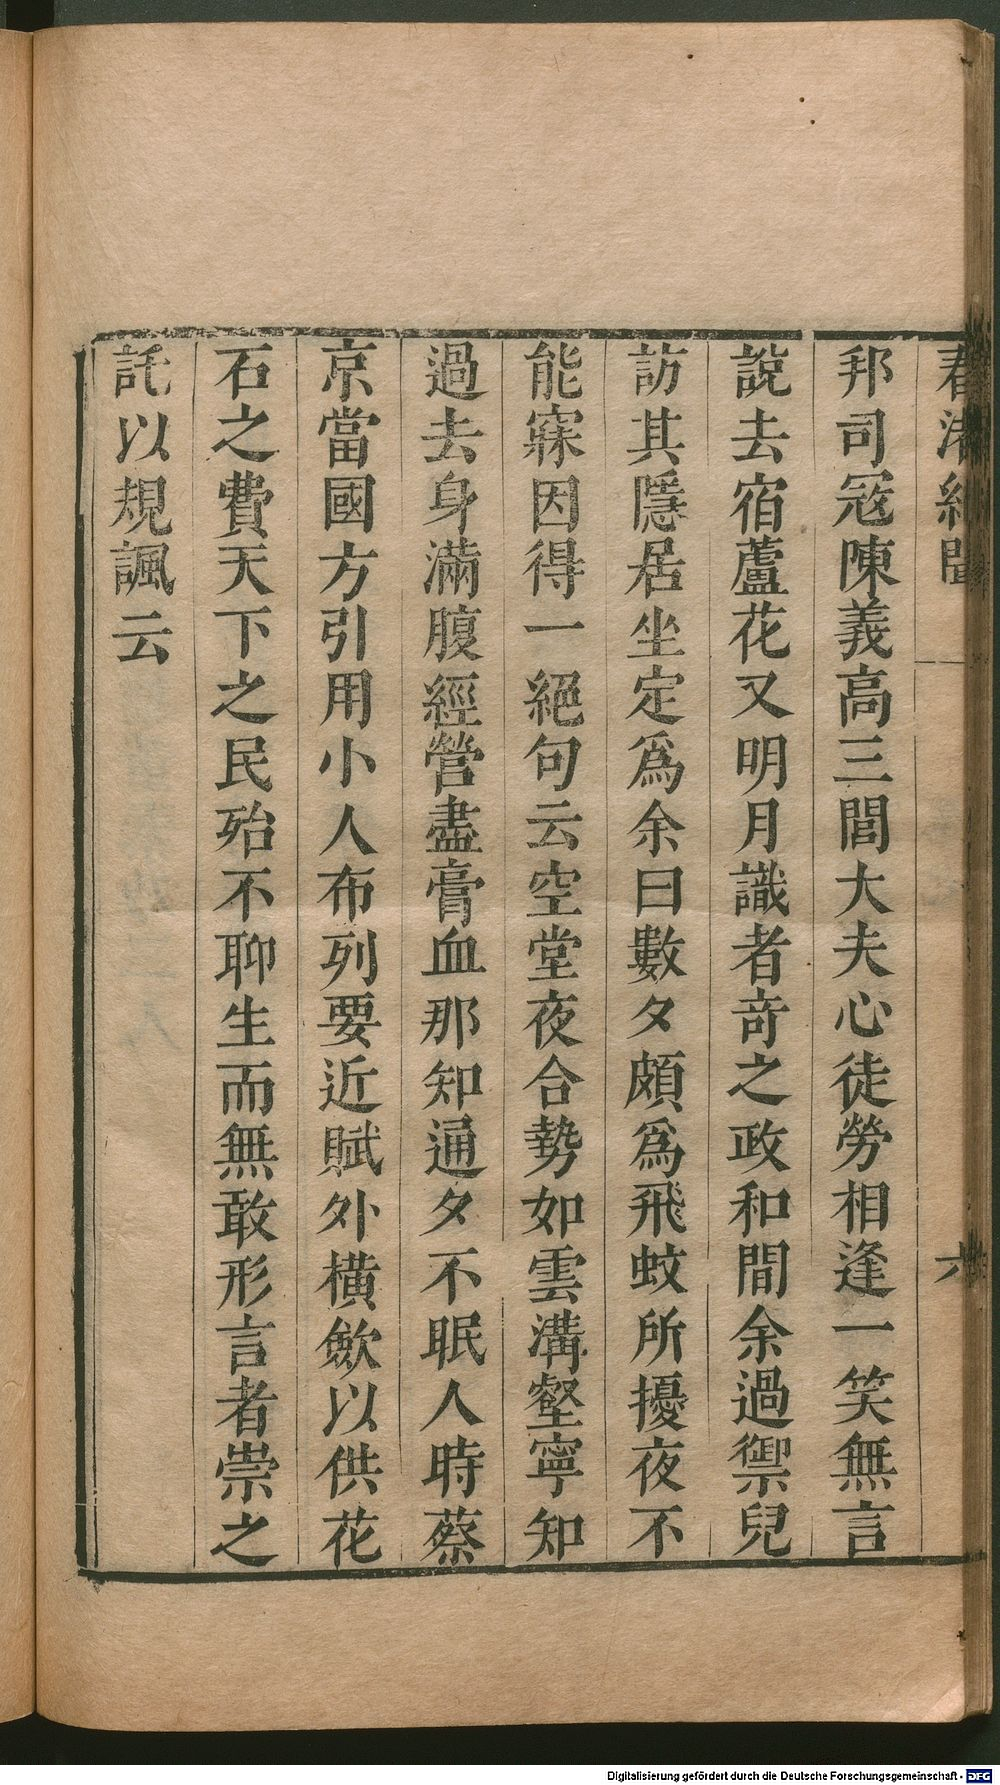 春渚紀聞
六
邦司冦陳義高三閭大夫心徒勞相逢一笑無言
說去宿蘆花又明月識者竒之政和間余過禦兒
訪其隱居坐定爲余曰數夕頗爲飛蚊所擾夜不
能寐因得一絕句云空堂夜合勢如雲溝壑寧知
過去身滿腹經營盡膏血那知通夕不眠人時蔡
京當國方引用小人布列要近賦外橫歛以供花
石之費天下之民殆不聊生而無敢形言者崇之
託以規諷云
Digitalisierung gefördert durch die Deutsche Forschungsgemeinschaft - DFG